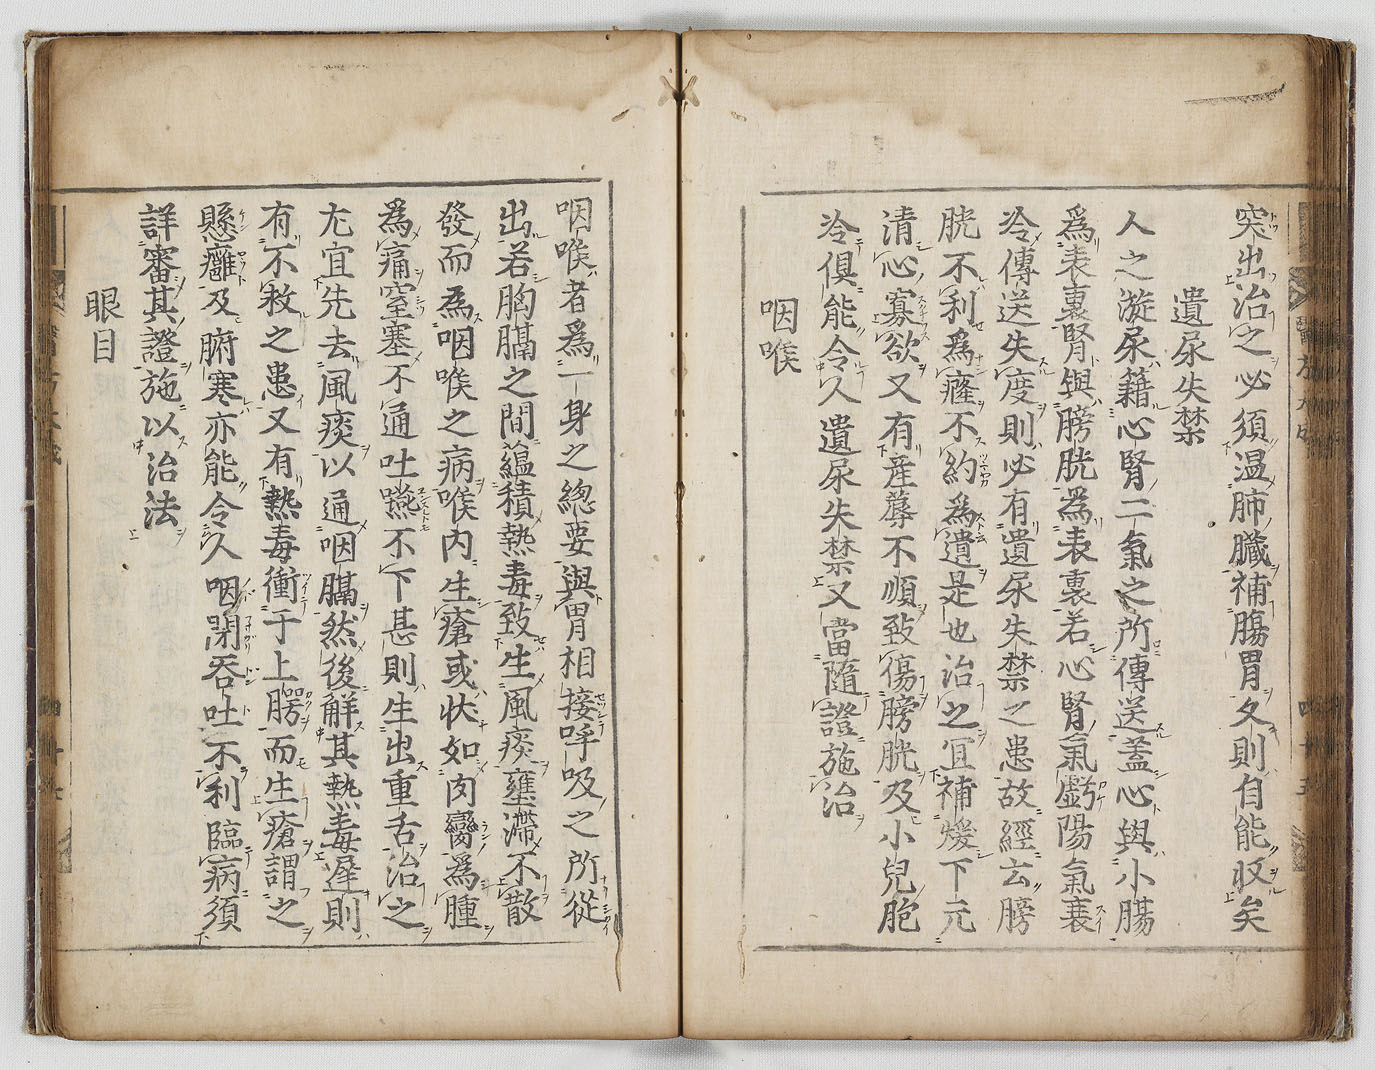 突出治之必須温肺臓補腸胃久則自能収矣
遺尿失禁
人之漩尿籍心腎二氣之所傳送盖心與小腸
為表裏腎與膀胱為表裏若心腎氣虧陽氣衰
冷傳送失度則必有遺尿失禁之患故經云膀
胱不利為癃不約為遺是也治之宜補煖下元
清心寡欲又有産蓐不順致傷膀胱及小兒胞
冷俱能令人遺尿失禁又當隨證施治
咽喉
咽喉者為一身之總要與胃相接呼吸之所從
出若胸膈之間蘊積熱毒致生風痰壅滯不散
發而為咽喉之病喉内生瘡或状如肉臠為腫
為痛窒塞不通吐嚥不下甚則生出重舌治之
尤宜先去風痰以通咽膈然後解其熱毒遅則
有不救之患又有熱毒衝于上腭而生瘡謂之
懸癰及腑寒亦能令人咽閉吞吐不利臨病須
詳審其證施以治法
眼目